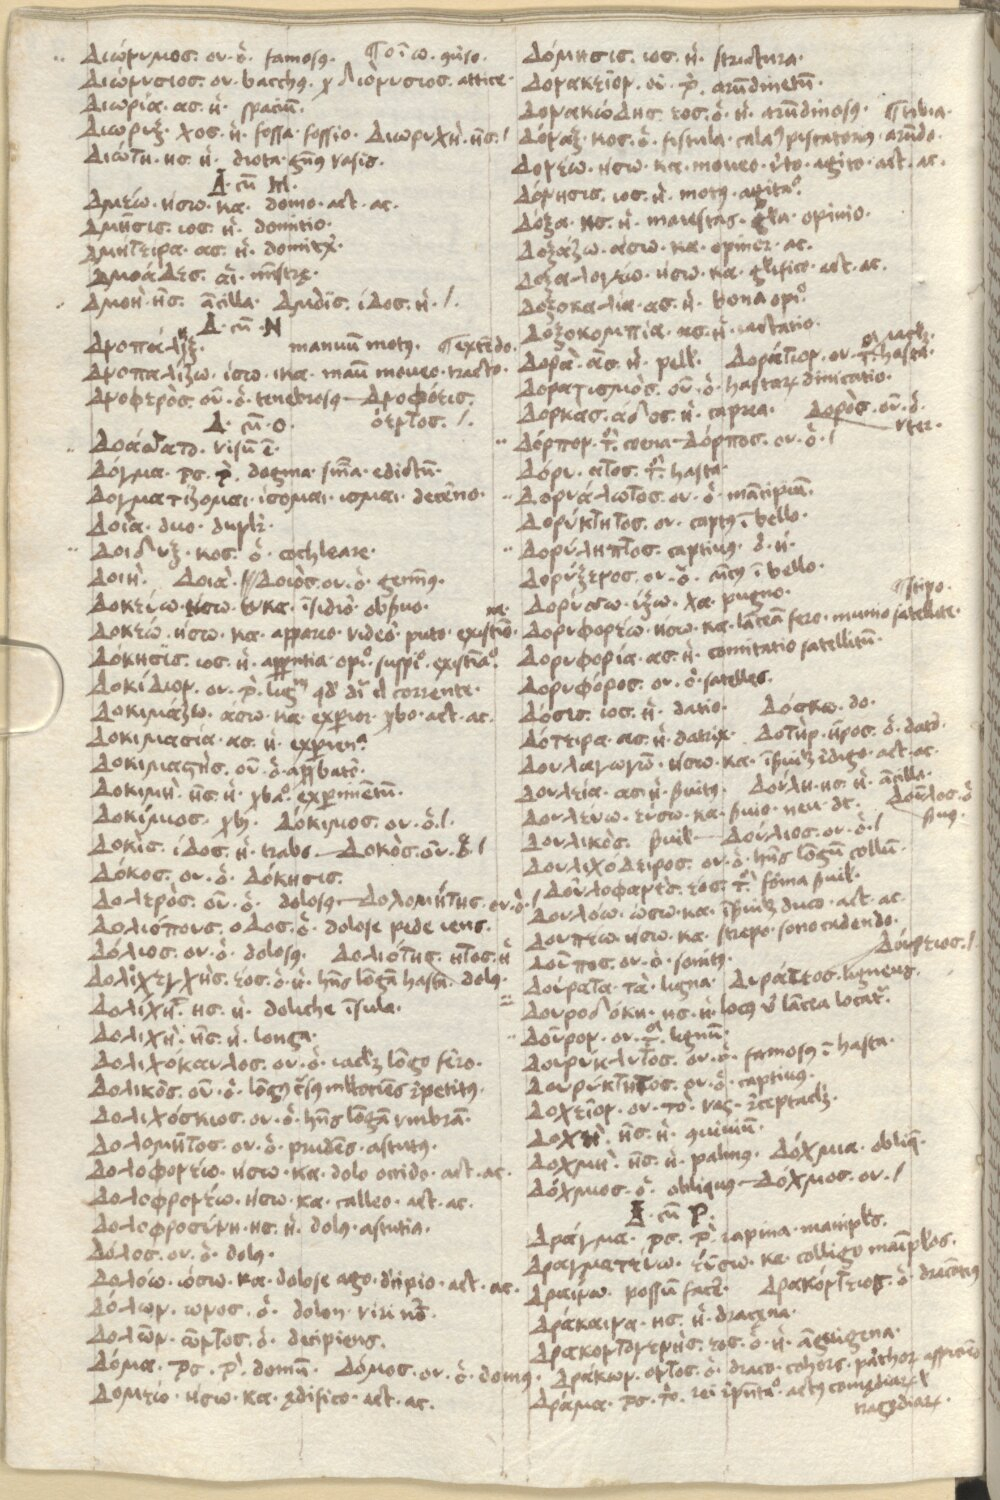 Διώνυμος. ου. ὁ. famosus.
Διώνυσιος. ου. bacchus. Διονυσιος. attice.
Διωρία. ας. ἡ. spaciū.
Διωρυξ. χος. ἡ. fossa. fossio. Διωρυχὴ. ῆς. /
Διώτη. ης. ἡ. diota. gen⁹ vasis.
Δ. cū M.
Δμέω. ησω. κα. domo. act. ac.
Δμῆσις. ιος. ἡ. domitio.
Δμητειρα. ας. ἡ. domitrix.
Δμοάδες. αἱ. mīstrę.
Δμωὴ. ῆς. ācilla. Δμωῒς. ίδος. ἡ. /.
Δ. cū. N
Δνοπάλιξ. manuū motus. extēdo.
Δνοπαλίζω. ίσω. ικα. manū moueo. tracto.
Δνοφερὸς. οῦ. ὁ. tenebrosus — Δνοφόεις.
όεντος. /.
Δ. cū. o.
Δοάσατο. visū ē.
Δόγμα. τος. τὸ. dogma. snīa. edictū.
Δογματίζομαι. ισομαι. ισμαι. decerno.
Δοιὰ. duo. duplex.
Δοίδυξ. κος. ὁ. cochleare.
Δοιὴ. Δοιὰ. Δοιὸς. ου. ὁ. geminus.
Δοκεύω. ευσω. ευκα. īsidior obseruo.
Δοκέω. ησω. κα. appareo. videor. puto. existimo.
Δόκησις. ιος. ἡ. apparentia. opio. suspio. existimatio.
Δοκίδιον. ου. τὸ.
Δοκιμάζω. άσω. κα. experior. probo. act. ac.
Δοκιμασία. ας. ἡ. experientia
Δοκιμαστὴς. οῦ. ὁ. approbator.
Δοκιμὴ. ῆς. ἡ. probatio. experimentū.
Δοκίμιος. Δόκιμος. ου. ὁ. /.
Δοκὶς. ίδος. ἡ. trabs. — Δοκὸς. οῦ. ὁ. /
Δόκος. ου. ὁ. Δόκησις.
Δολερὸς. οῦ. ὁ. dolosus — Δολομήτης. ου. ὁ. /
Δολιόπους. οδος. ὁ. dolose pede iens.
Δόλιος. ου. ὁ. dolosus. Δολιότης. ητος. ἡ
Δολιχεγχὴς. εος. ὁ. ἡ. hn̄s lōgā hastā. dolus.
Δολίχη. ης. ἡ. doliche īsula.
Δολιχὴ. ῆς. ἡ. longa.
Δολιχόκαυλος. ου. ὁ. lōgo ferro.
Δολικὸς. οῦ. ὁ. repetitus.
Δολιχόσκιος. ου. ὁ. hn̄s lōgā vmbrā.
Δολομητος. ου. ὁ. prudēs. astutus.
Δολοφονέω. ησω. κα. dolo occido. act. ac.
Δολοφρονέω. ησω. κα. calleo. act. ac.
Δολοφροσύνη. ης. ἡ. dolus. astutia.
Δόλος. ου. ὁ. dolus.
Δολόω. ώσω. κα. dolose ago. decipio. act. ac.
Δόλων. ωνος. ὁ. dolon. viri nō.
Δολῶν. ῶντος. ὁ. decipiens.
Δόμα. τος. τὸ. domū. Δόμος. ου. ὁ. domus.
Δομέω. ησω. κα. ędifico. act. ac.
Δόμησις. ιος. ἡ. structura.
Δονακεῖον. ου. τὸ. arūdinetū.
Δονακώδης. εος. ὁ. ἡ. arūdinosus. tibia.
Δόναξ. κος. ὁ. fistula. calamus piscatorius. arūdo.
Δονέω. ησω. κα. moueo. agito. act. ac.
Δόνησις. ιος. ἡ. motus. agitatio.
Δόξα. ης. ἡ. maiestas. gl̄a. opinio.
Δοξάζω. άσω. κα. opinor. ac.
Δοξαλογέω. ησω. κα. glifico. act. ac.
Δοξοκαλία. ας. ἡ. bona opio.
Δοξοκομπία. ας. ἡ. iactatio.
Δορὰ. ᾶς. ἡ. pellis. Δοράτιον. ου. τὸ. hasta.
Δορατισμὸς. οῦ. ὁ. hastarum dimicatio.
Δορκας. αδος. ἡ. caprea. Δορὸς. οῦ. ὁ.
vter.
Δόρπον. τὸ. coena — Δόρπος. ου. ὁ. /
Δόρυ. ατος. τὸ. hasta.
Δορυάλωτος. ου. ὁ. mācipiū.
Δορύκτητος. ου. captus ī bello.
Δορύληπτος. captiuus. ὁ. ἡ.
Δορύξενος. ου. ὁ. amicus ī bello.
Δορύσσω. ύξω. χα. pugno. stipo.
Δορυφορέω. ησω. κα. lāceā fero. munio satellite.
Δορυφορία. ας. ἡ. comitatio satellitū.
Δορυφόρος. ου. ὁ. satelles.
Δόσις. ιος. ἡ. datio. Δόσκω. do.
Δότειρα. ας. ἡ. datrix. Δοτὴρ. ῆρος. ὁ. dator.
Δουλαγωγῶ. ησω. κα. redigo. act. ac.
Δουλεία. ας. ἡ. seruitus. Δούλη. ης. ἡ. ācilla.
Δουλεύω. εύσω. κα. seruio. neu. dt. Δοῦλος. ὁ
seruus.
Δουλικὸς. seruil. — Δούλιος. ου. ὁ. /
Δουλιχόδειρος. ου. ὁ. hn̄s lōgū collū.
Δουλοφανὲς. έος. τὸ. forma seruil.
Δουλόω. ώσω. κα. duco. act. ac.
Δουπέω. ησω. κα. strepo. sono cadendo.
Δοῦπος. ου. ὁ. sonitus. Δούρειος. /.
Δούρατα. τὰ. ligna. Δυράτεος. ligneus.
Δουροδόκη. ης. ἡ. locus vbi lācea locatur.
Δοῦρον. ου. τὸ. lignū.
Δουρικλυτὸς. ου. ὁ. famosus ī hasta.
Δουρύκτητος. ου. ὁ. captiuus.
Δοχεῖον. ου. τὸ. vas. receptaculum.
Δοχὴ. ῆς. ἡ. conuiuiū.
Δοχμὴ. ῆς. ἡ. palmus. Δόχμια. obliqua.
Δόχμιος. ὁ. obliquus — Δόχμος. ου. /
Δ. cū P.
Δράγμα. τος. τὸ. rapina. manipulus.
Δραγματεύω. εύσω. κα. colligo manipulos.
Δραίνω. possum facere. Δρακόντειος. ὁ. draconeus
Δράκαινα. ης. ἡ. dracęna.
Δρακοντογενὴς. εος. ὁ. ἡ. āguigena.
Δράκων. οντος. ὁ. draco.
Δρᾶμα. τος. τὸ. rei actus comędiarum
tragędiarum.